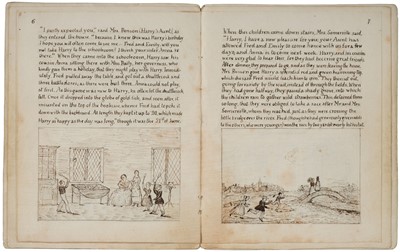 6
"I partly expected you," said Mrs. Benson (Harry's Aunt), as
they entered the house: "because I knew this was Harry's birthday
I hope you will often come to me. Fred and Emily, will you
not take Harry to the schoolroom? I think your cousin Anna is
there." When they came into the schoolroom, Harry saw his
cousin Anna, sitting there with Mrs. Daily, her governess, who
kindly gave them a holiday that they might play with Harry. Immedi-
ately Fred pulled away the table and got out a shuttlecock and
three battledores; as there were but three, Anna would not play
at first. As this game was so new to Harry, he often let the shuttlecock
fall. Once it dropped into the globe of gold fish, and soon after it
remained on the top of the bookcase, where Fred had to poke it
down with the battledore. At length they kept it up to 30, which made
Harry as happy as the day was long, though it was the 21st of
7
When the children came down stairs, Mrs. Somerville said,
"Harry, I have a new pleasure for you, your Aunt has
allowed Fred and Emily to come home with us for a few
days, and Anna to come next week. Harry and his cousins
were very glad to hear this, for they had been very great friends.
After dinner they prepared to go; and as they were leaving the house,
Mrs. Benson gave Harry a splendid red and green humming top
which she said Fred would teach him to spin. Then they set out,
going homewards by the road instead of through the fields. When
they had gone halfway, they passed a shady grove into which
the children ran to gather wild strawberries. This detained them
so long, that they were obliged to take a race after Mr. and Mrs.
Somerville, whom they reached just as they were crossing the
little bridge over the river.